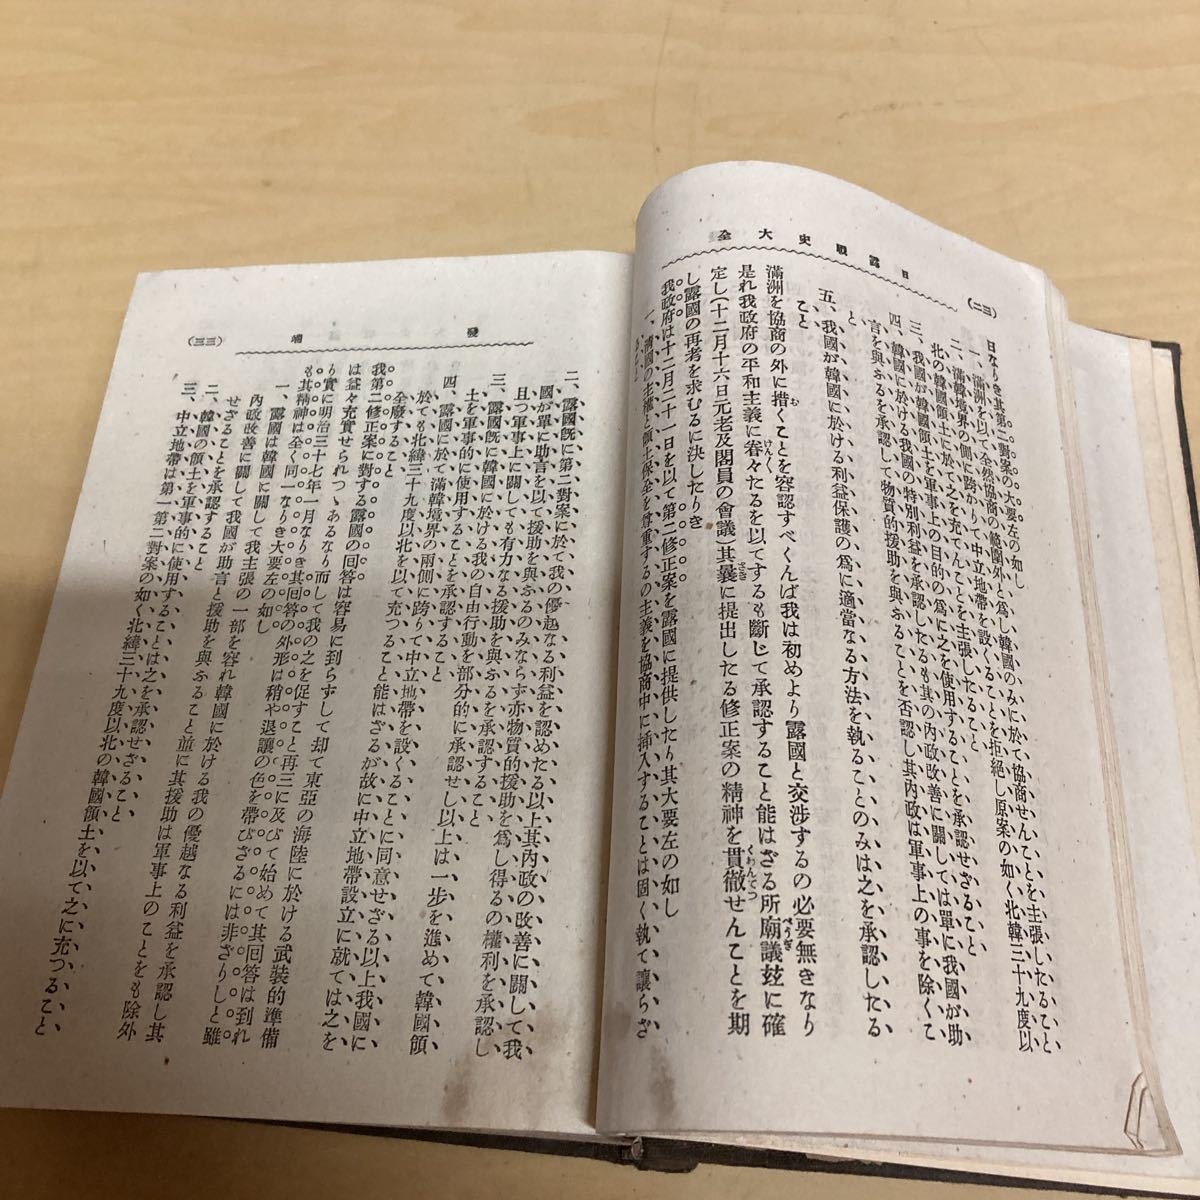 日露戰史大全
(三二)
日なりき其第二對案の大要左の如し
一、滿洲を以て全然協商の範圍外と爲し韓國のみに於て協商せんことを主張したること
二、滿韓境界の側に跨かりて中立地帶を設くることを拒絕し原案の如く北韓三十九度以
北の韓國領土に於て之を充てんことを主張したること
三、我國が韓國領土を軍事上の目的の爲に之を使用することを承認せざること
四、韓國に於ける我國の特別利益を承認したるも其の內政改善に關しては單に我國が助
言を與ふるを承認して物質的援助を與ふることを否認し其內政は軍事上の事を除くこ
と
五、我國が韓國に於ける利益保護の爲に適當なる方法を執ることのみは之を承認したる
こと
滿洲を協商の外に措くことを容認すべくんば我は初めより露國と交涉するの必要無きなり
是れ我政府の平和主義に眷々たるを以てするも斷じて承認すること能はざる所廟議玆に確
定し(十二月十六日元老及閣員の會議)其曩に提出したる修正案の精神を貫徹せんことを期
し露國の再考を求むるに決したりき
我政府は十二月二十一日を以て第二修正案を露國に提供したり其大要左の如し
一、淸國の主權と領土保全を尊重するの主義を協商中に挿入することは固く執て讓らざ
發端
(三三)
二、露國旣に第二對案に於て我の優越なる利益を認めたる以上其內政の改善に關して我
國が單に助言を以て援助を與ふるのみならず亦物質的援助を爲し得るの權利を承認し
且つ軍事上に關しても有力なる援助を與ふるを承認すること
三、露國旣に韓國に於ける我の自由行動を部分的に承認せし以上は一步を進めて韓國領
土を軍事的に使用することを承認すること
四、露國に於て滿韓境界の兩側に跨りて中立地帶を設くることに同意せざる以上我國に
於ても北緯三十九度以北を以て充つること能はざるが故に中立地帶設立に就ては之を
全廢すること
我第二修正案に對する露國の回答は容易に到らずして却て東亞の海陸に於ける武裝的準備
は益々充實せられつゝあるなり而して我の之を促すこと再三に及びて始めて其回答は到れ
り實に明治三十七年一月なりき其回答の外形は稍や退讓の色を帶びざるには非ざりしと雖
も其精神は全く同一なりき大要左の如し
一、露國は韓國に關して我主張の一部を容れ韓國に於ける我の優越なる利益を承認し其
內政改善に關して我國が助言と援助を與ふること並に其援助は軍事上のことをも除外
せざることを承認すること
二、韓國の領土を軍事的に使用することは之を承認せざること
三、中立地帶は第一第二對案の如く北緯三十九度以北の韓國領土を以て之に充つること